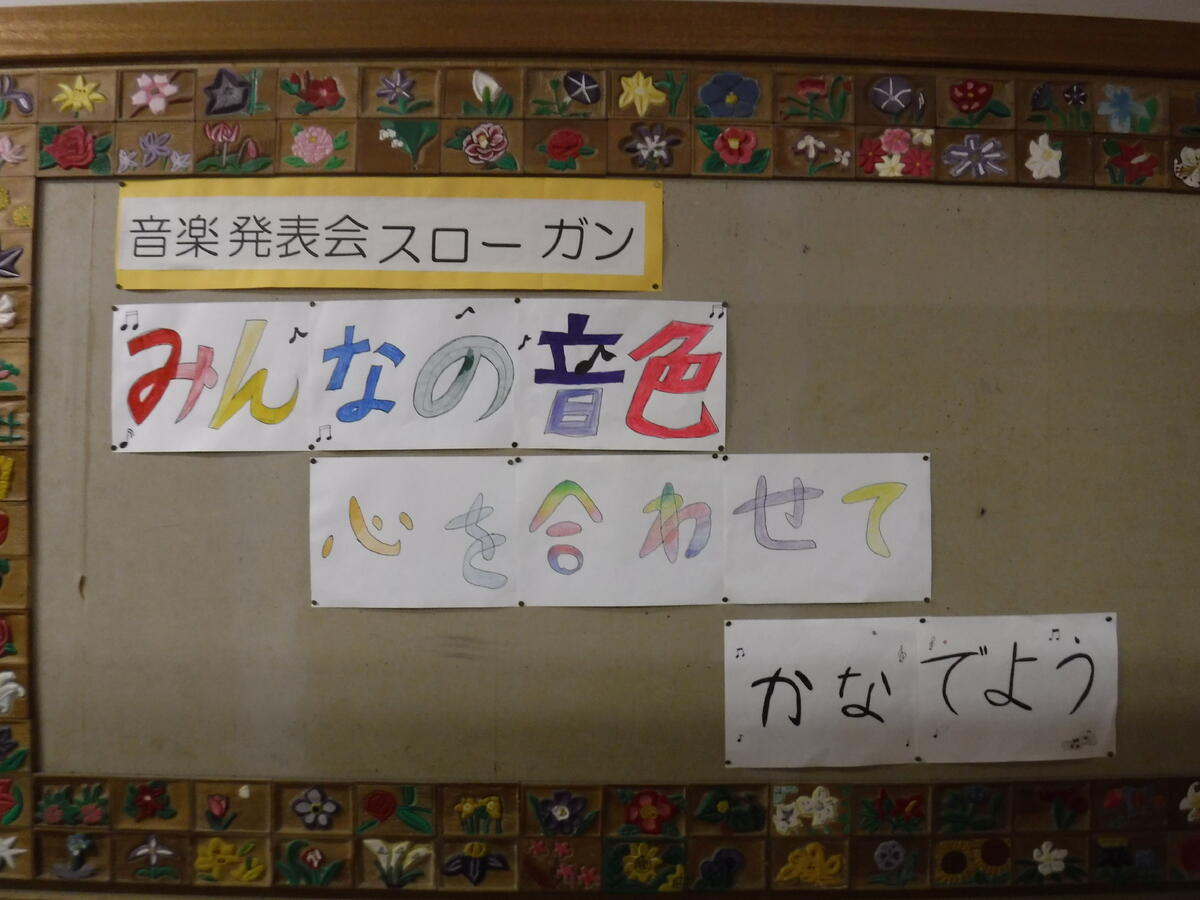 音楽発表会スローガン
みんなの音色
心を合わせて
かなでよう